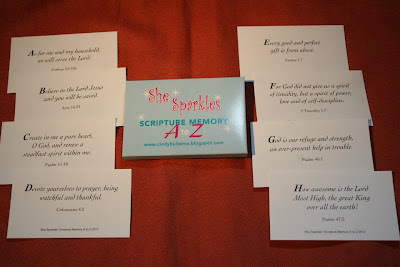 As for me and my household,
we will serve the Lord.
Joshua 24:15b
Believe in the Lord Jesus
and you will be saved.
Acts 16:31
Create in me a pure heart,
O God, and renew a
steadfast spirit within me.
Psalm 51:10
Devote yourselves to prayer, being
watchful and thankful.
Colossians 4:2
"She Sparkles" Scripture Memory A to Z 2012
She Sparkles
SCRIPTURE MEMORY
A TO Z
www.cindybultema.blogspot.com
Every good and perfect
gift is from above.
James 1:7
For God did not give us a spirit
of timidity, but a spirit of power,
love and of self-discipline.
2 Timothy 1:7
God is our refuge and strength,
an ever-present help in trouble.
Psalm 46:1
How awesome is the Lord
Most High, the great King
over all the earth!
Psalm 47:2
"She Sparkles" Scripture Memory A to Z 2012